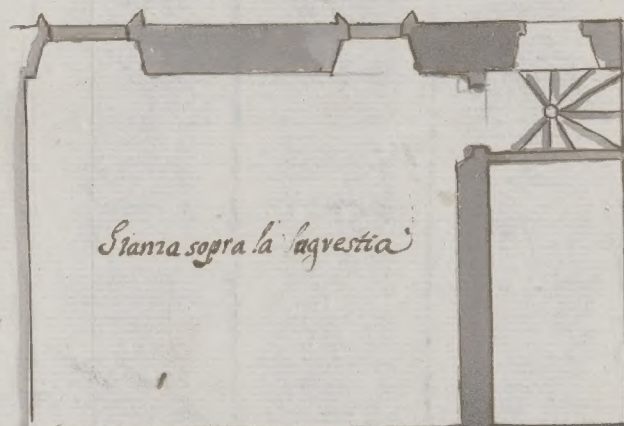 Stanza sopra la sagrestia